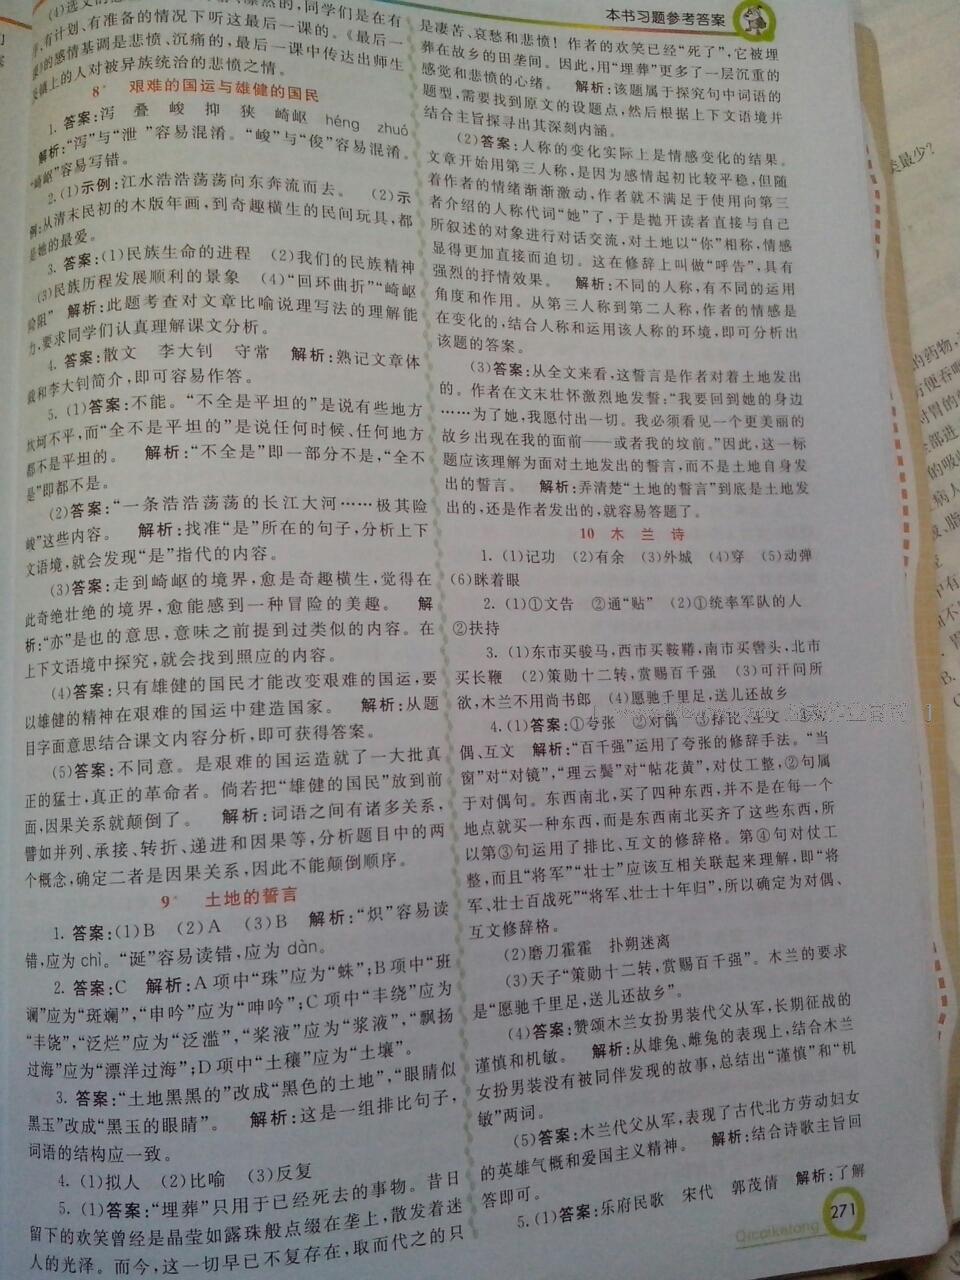 本书习题参考答案
(4)选文的感
凛然的,同学们是在有
有计划、有准备的情况下听这最后一课的。《最后一
的感情基调是悲愤、沉痛的,最后一课中传达出师生
镇上的人对被异族统治的悲愤之情。
8* 艰难的国运与雄健的国民
1. 答案:泻 叠 峻 抑 狭 崎岖 héng zhuó
解析:“泻”与“泄”容易混淆。“峻”与“俊”容易混淆。
“崎岖”容易写错。
2. (1)示例:江水浩浩荡荡向东奔流而去。 (2)示
例:从清末民初的木版年画,到奇趣横生的民间玩具,都
是她的最爱。
3. 答案:(1)民族生命的进程 (2)我们的民族精神
(3)民族历程发展顺利的景象 (4)“回环曲折”“崎岖
险阻” 解析:此题考查对文章比喻说理写法的理解能
力,要求同学们认真理解课文分析。
4. 答案:散文 李大钊 守常 解析:熟记文章体
裁和李大钊简介,即可容易作答。
5. (1)答案:不能。“不全是平坦的”是说有些地方
坎坷不平,而“全不是平坦的”是说任何时候、任何地方
都不是平坦的。 解析:“不全是”即一部分不是,“全不
是”即都不是。
(2)答案:“一条浩浩荡荡的长江大河……极其险
峻”这些内容。 解析:找准“是”所在的句子,分析上下
文语境,就会发现“是”指代的内容。
(3)答案:走到崎岖的境界,愈是奇趣横生,觉得在
此奇绝壮绝的境界,愈能感到一种冒险的美趣。 解
析:“亦”是也的意思,意味之前提到过类似的内容。在
上下文语境中探究,就会找到照应的内容。
(4)答案:只有雄健的国民才能改变艰难的国运,要
以雄健的精神在艰难的国运中建造国家。 解析:从题
目字面意思结合课文内容分析,即可获得答案。
(5)答案:不同意。是艰难的国运造就了一大批真
正的猛士,真正的革命者。倘若把“雄健的国民”放到前
面,因果关系就颠倒了。 解析:词语之间有诸多关系,
譬如并列、承接、转折、递进和因果等,分析题目中的两
个概念,确定二者是因果关系,因此不能颠倒顺序。
9* 土地的誓言
1. 答案:(1)B (2)A (3)B 解析:“炽”容易读
错,应为 chì。“诞”容易读错,应为 dàn。
2. 答案:C 解析:A项中“珠”应为“蛛”;B项中“班
斓”应为“斑斓”,“申吟”应为“呻吟”;C项中“丰绕”应为
“丰饶”,“泛烂”应为“泛滥”,“桨液”应为“浆液”,“飘扬
过海”应为“漂洋过海”;D项中“土穰”应为“土壤”。
3. 答案:“土地黑黑的”改成“黑色的土地”,“眼睛似
黑玉”改成“黑玉的眼睛”。 解析:这是一组排比句子,
词语的结构应一致。
4. (1)拟人 (2)比喻 (3)反复
5. (1)答案:“埋葬”只用于已经死去的事物。昔日
留下的欢笑曾经是晶莹如露珠般点缀在垄上,散发着迷
人的光泽。而今,这一切早已不复存在,取而代之的只
是凄苦、哀愁和悲愤!作者的欢笑已经“死了”,它被埋
葬在故乡的田垄间。因此,用“埋葬”更多了一层沉重的
感觉和悲愤的心绪。 解析:该题属于探究句中词语的
题型,需要找到原文的设题点,然后根据上下文语境并
结合主旨探寻出其深刻内涵。
(2)答案:人称的变化实际上是情感变化的结果。
文章开始用第三人称,是因为情感起初比较平稳,但随
着作者的情绪渐渐激动,作者就不满足于使用向第三
者介绍的人称代词“她”了,于是抛开读者直接与自己
所叙述的对象进行对话交流,对土地以“你”相称,情感
显得更加直接而迫切。这在修辞上叫做“呼告”,具有
强烈的抒情效果。 解析:不同的人称,有不同的运用
角度和作用。从第三人称到第二人称,作者的情感是
在变化的,结合人称和运用该人称的环境,即可分析出
该题的答案。
(3)答案:从全文来看,这誓言是作者对着土地发出
的。作者在文末壮怀激烈地发誓:“我要回到她的身边
……为了她,我愿付出一切。我必须看见一个更美丽的
故乡出现在我的面前——或者我的坟前。”因此,这一标
题应该理解为面对土地发出的誓言,而不是土地自身发
出的誓言。 解析:弄清楚“土地的誓言”到底是土地发
出的,还是作者发出的,就容易答题了。
10 木兰诗
1. (1)记功 (2)有余 (3)外城 (4)穿 (5)动弹
(6)眯着眼
2. (1)①文告 ②通“贴” (2)①统率军队的人
②扶持
3. (1)东市买骏马,西市买鞍鞯,南市买辔头,北市
买长鞭 (2)策勋十二转,赏赐百千强 (3)可汗问所
欲,木兰不用尚书郎 (4)愿驰千里足,送儿还故乡
4. (1)答案:①夸张 ②对偶 ③排比、互文
偶、互文 解析:“百千强”运用了夸张的修辞手法。“当
窗”对“对镜”,“理云鬓”对“帖花黄”,对仗工整,②句属
于对偶句。东西南北,买了四种东西,并不是在每一个
地点就买一种东西,而是东西南北买齐了这些东西,所
以第③句运用了排比、互文的修辞格。第④句对仗工
整,而且“将军”“壮士”应该互相关联起来理解,即“将
军、壮士百战死”“将军、壮士十年归”,所以确定为对偶、
互文修辞格。
(2)磨刀霍霍 扑朔迷离
(3)天子“策勋十二转,赏赐百千强”。木兰的要求
是“愿驰千里足,送儿还故乡”。
(4)答案:赞颂木兰女扮男装代父从军,长期征战的
谨慎和机敏。 解析:从雄兔、雌兔的表现上,结合木兰
女扮男装没有被同伴发现的故事,总结出“谨慎”和“机
敏”两词。
(5)答案:木兰代父从军,表现了古代北方劳动妇女
的英雄气概和爱国主义精神。 解析:结合诗歌主旨回
答即可。
5. (1)答案:乐府民歌 宋代 郭茂倩 解析:了解
Qicaiketang
271
类最少?
的药物,
方便吞咽
对胃的
全部进
的吸收
病人
B.